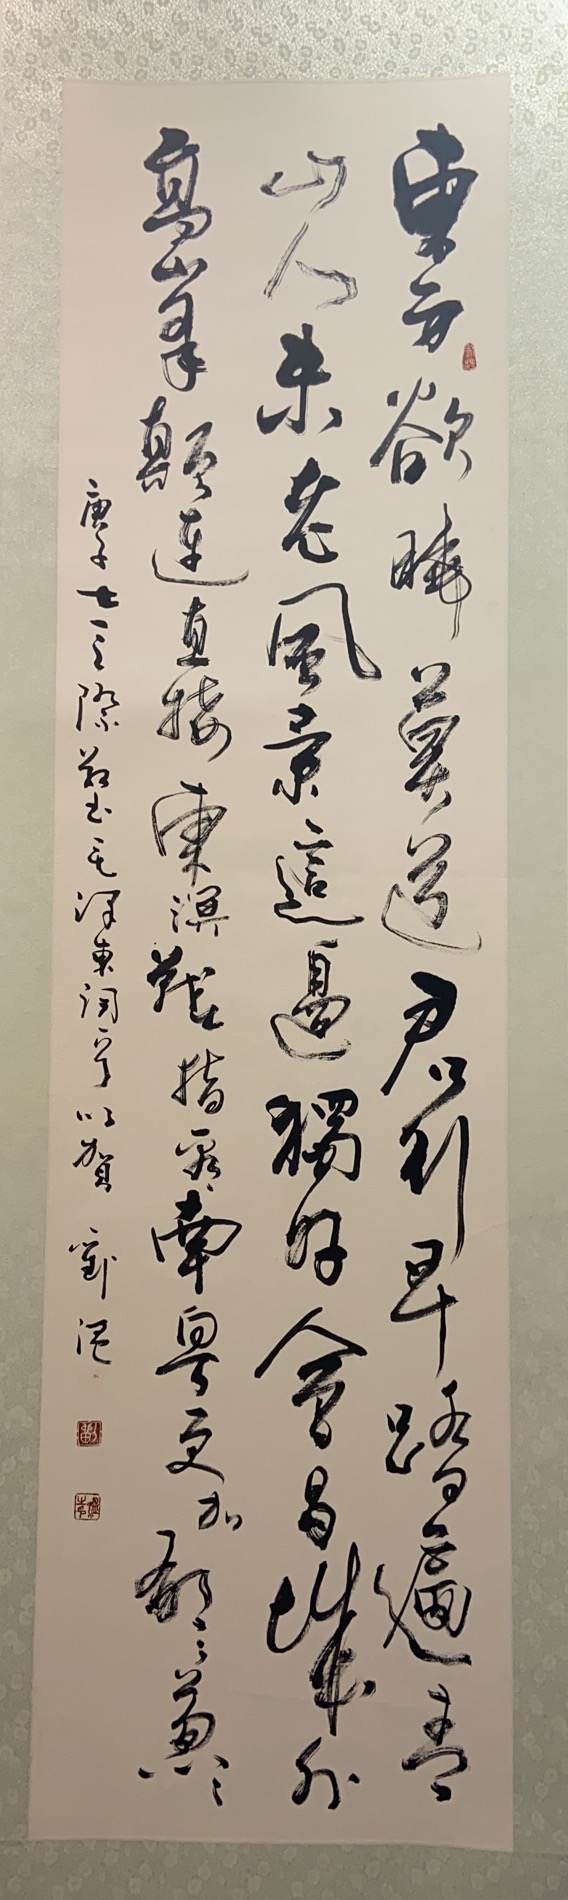 東方欲曉莫道君行早踏遍青
山人未老風景這邊獨好會昌城外
高峯顛連直接東溟戰士指看南粤更加郁〻葱〻
庚子七一之際敬書毛澤東詞一首以賀 劉